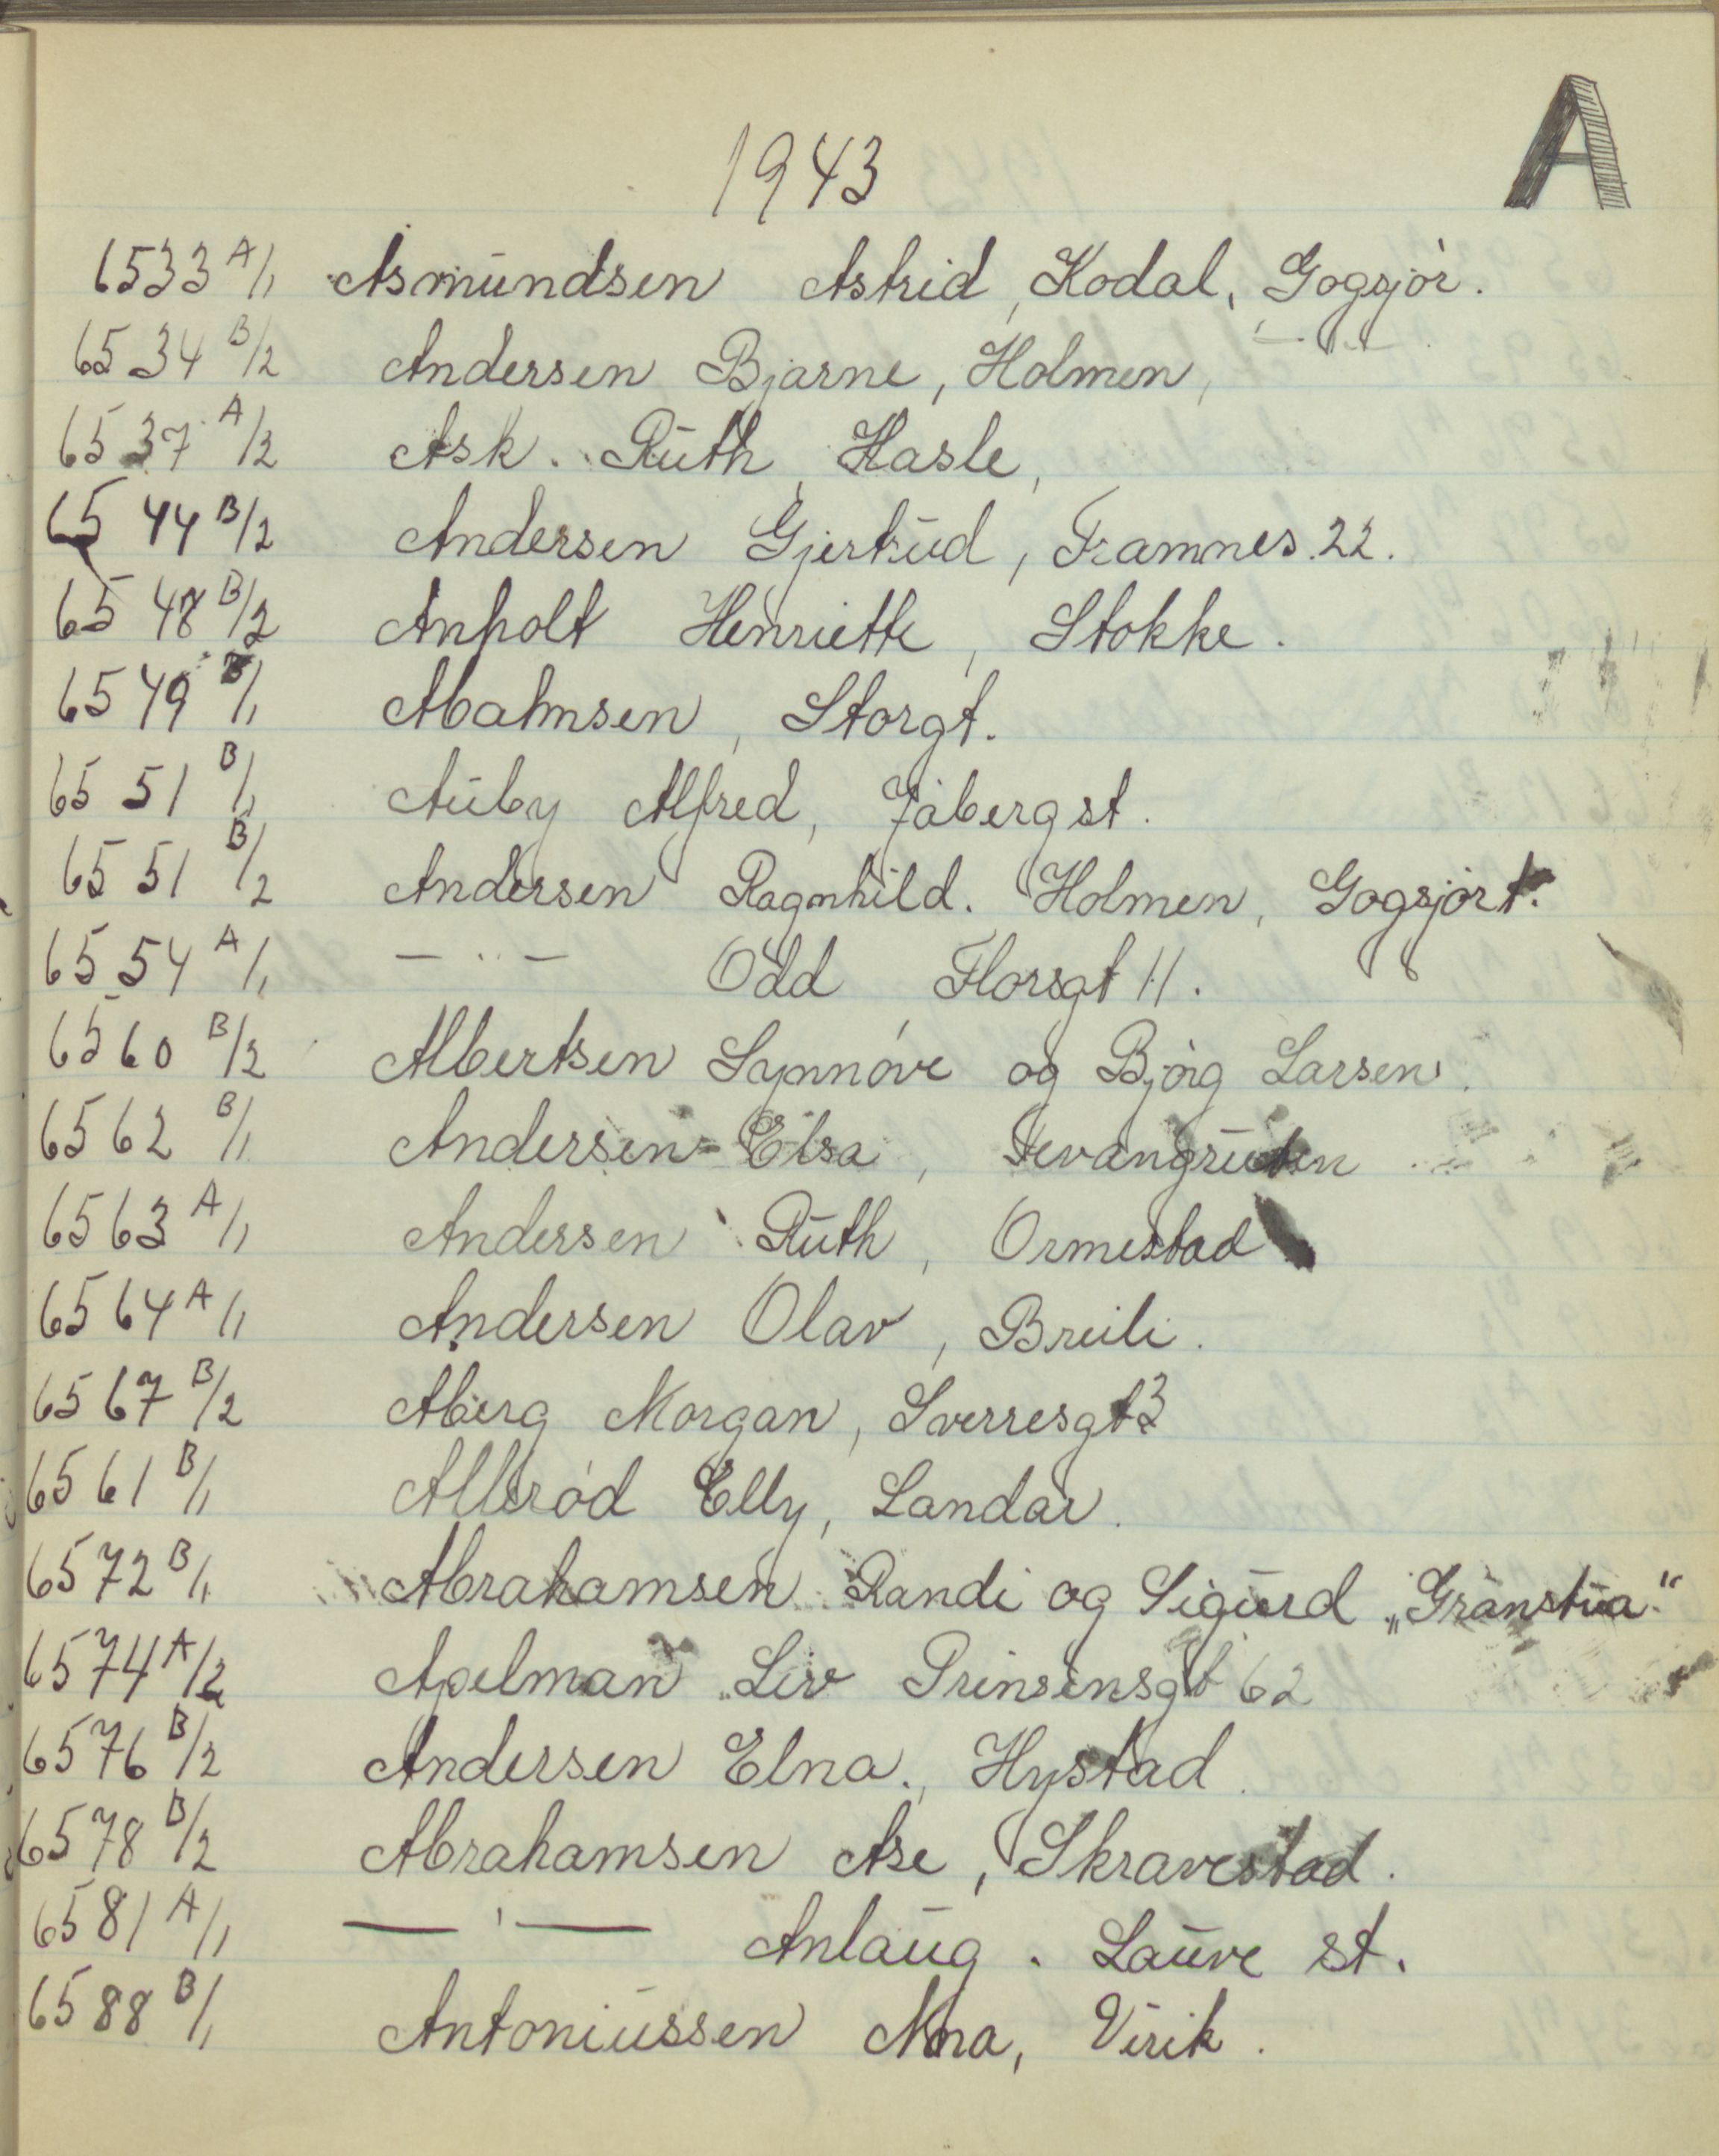 A
1943
6533 A/1 Asmundsen Astrid, Kodal, Gogsjør.
6534 B/2 Andersen Bjarne, Holmen, — " —
6537 A/2 Ask. Ruth, Hasle,
6544 B/2 Andersen Gjertrud, Framnes 22.
6548 B/2 Anholt Henriette, Stokke.
6549 B/1 Abahmsen, Storgt.
6551 B/1 Auby Alfred, Jåberg st.
6551 B/2 Andersen Ragnhild. Holmen, Gogsjørt.
6554 A/1 — " — Odd Florsgt 11.
6560 B/2 Albertsen Synnøve og Bjørg Larsen.
6562 B/1 Andersen Elsa,
6563 A/1 Andersen Ruth, Ormestad
6564 A/1 Andersen Olav, Breili.
6567 B/2 Aberg Morgan, Sverresgt 3
6561 B/1 Allerød Elly, Landar.
6572 B/1 Abrahamsen Randi og Sigurd „Granstua."
6574 A/2 Apelman Liv Prinsensgt 62
6576 B/2 Andersen Elna., Hystad.
6578 B/2 Abrahamsen Åse, Skravestad.
6581 A/1 — " — Anlaug. Lauve st.
6588 B/1 Antoniussen Anna, Virik.